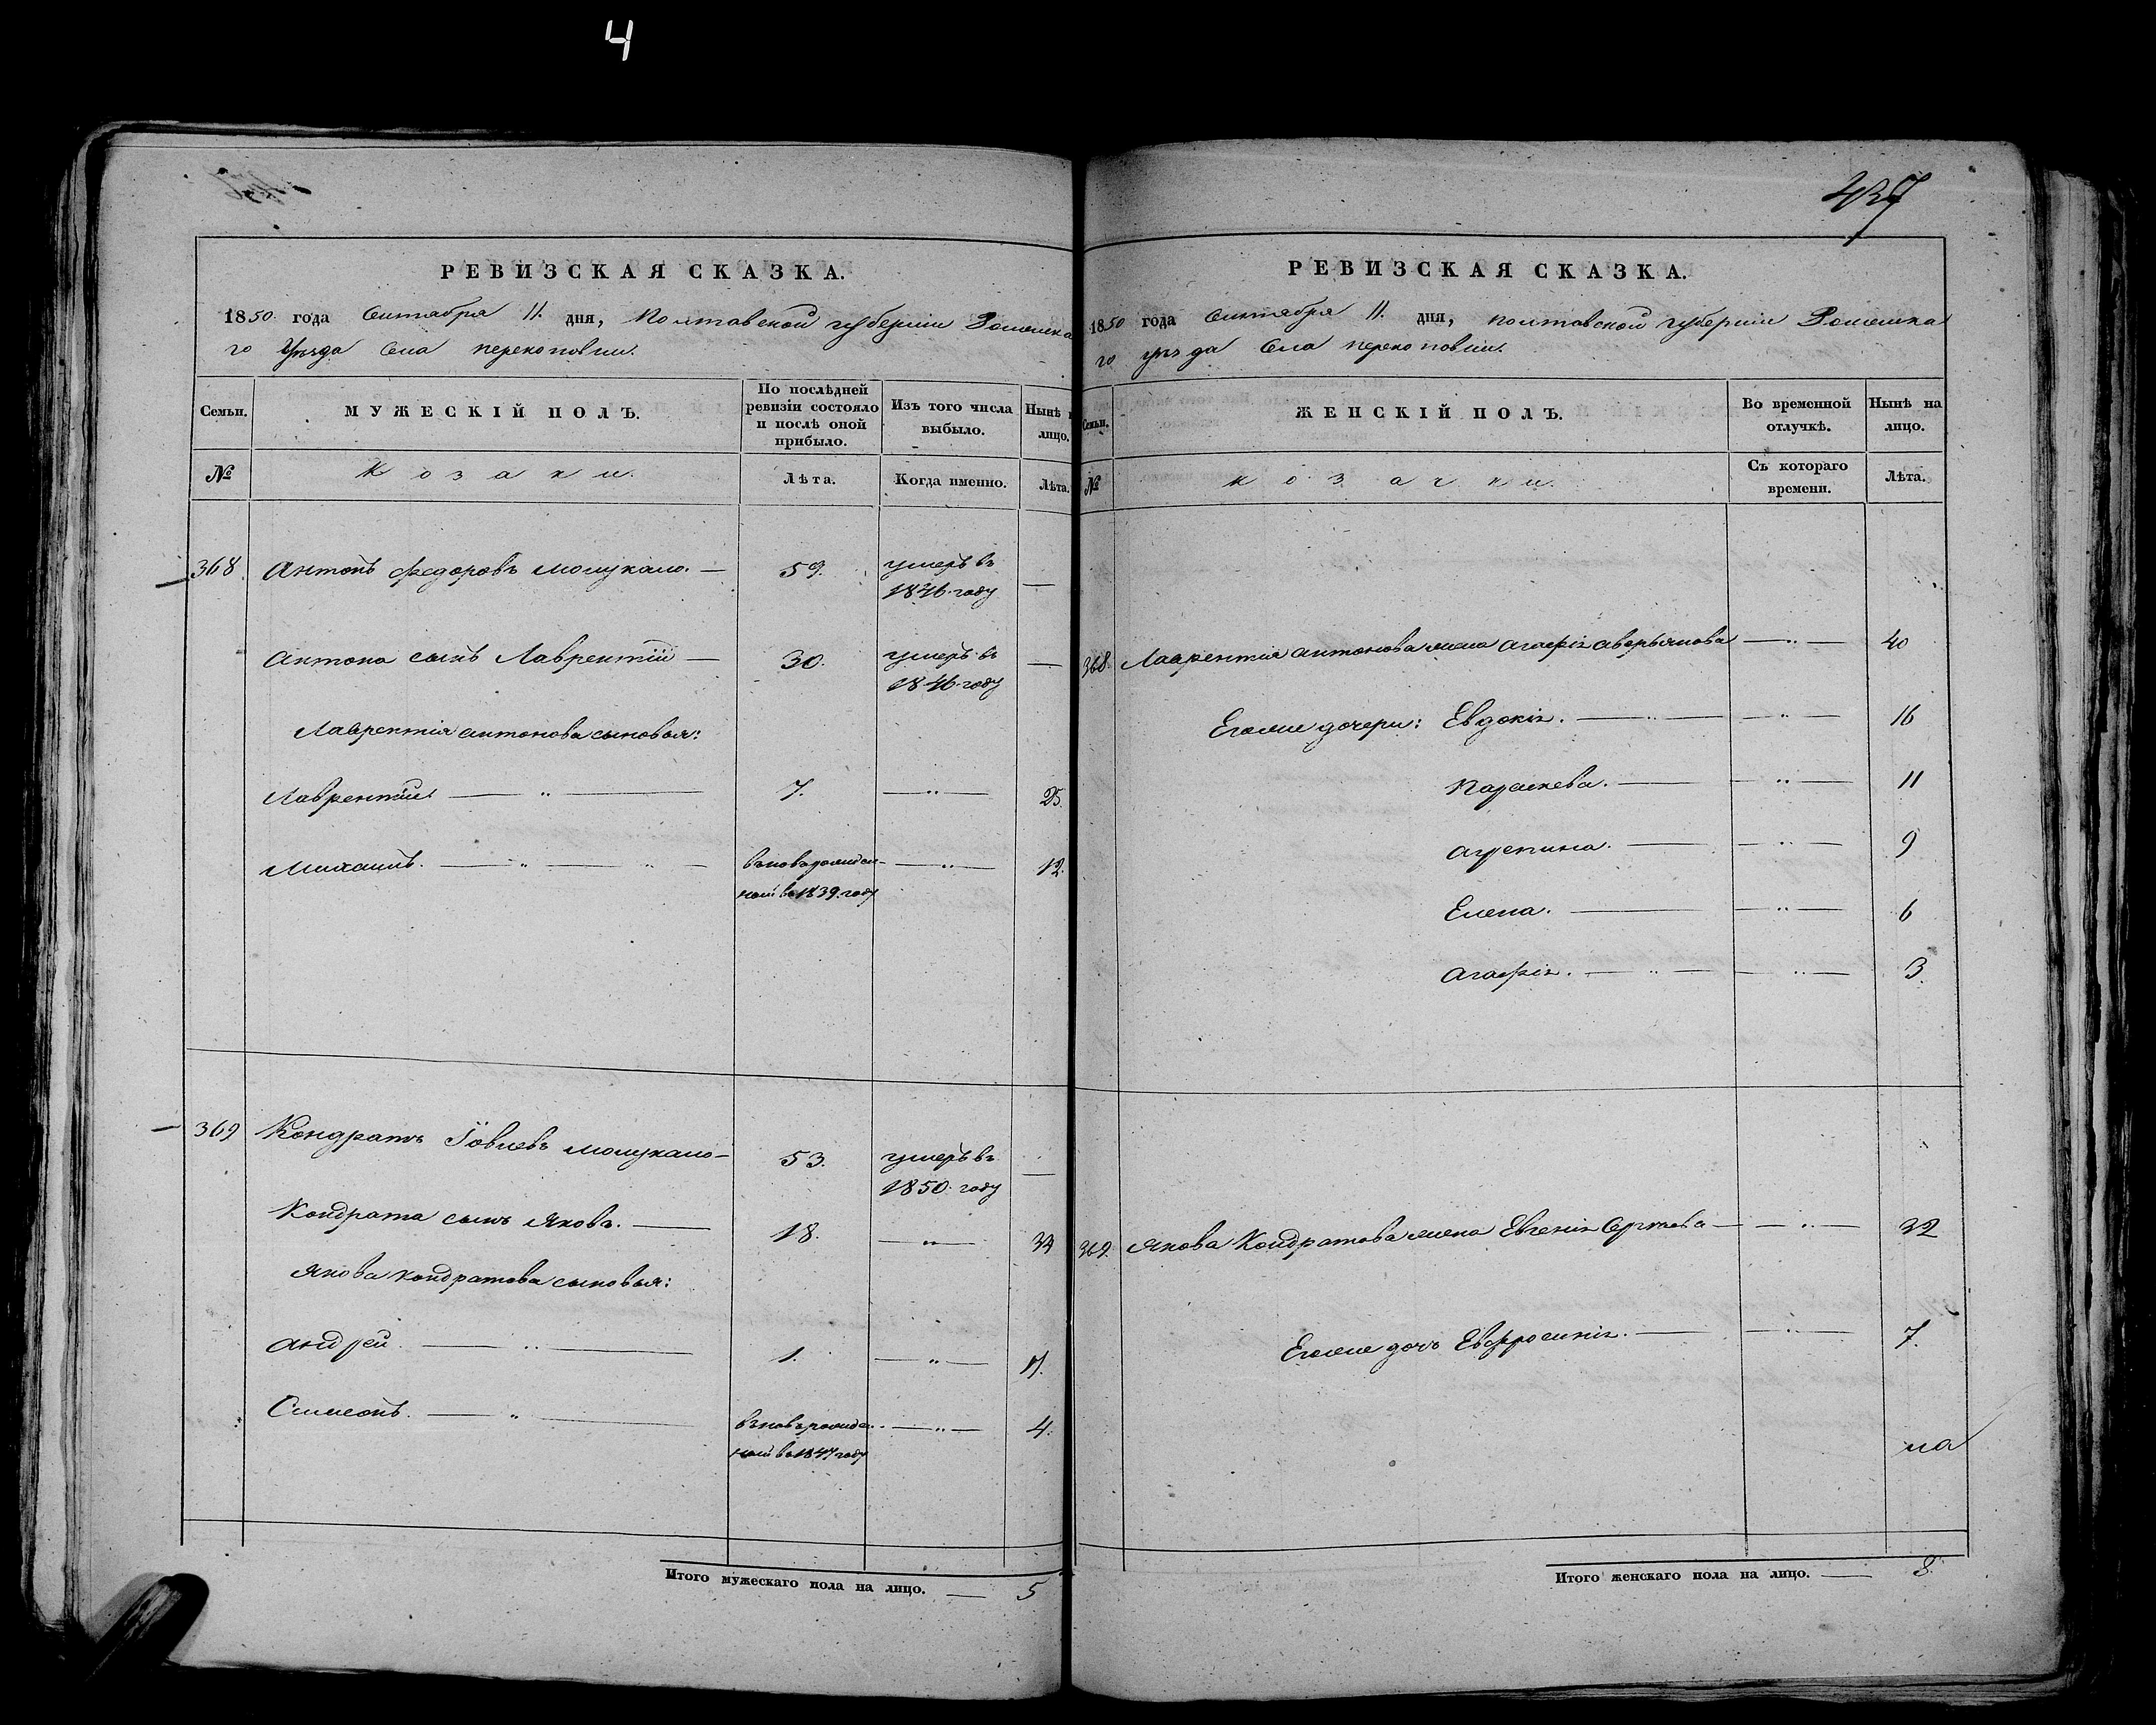 4
437
РЕВИЗСКАЯ СКАЗКА.
1850 года Сентября 11. дня, Полтавской губернии Ромѣнска
го Уѣзда Села Перекоповки.
Семьи. МУЖЕСКІЙ ПОЛЪ. По послѣдней ревизіи состояло и послѣ оной прибыло. Изъ того числа выбыло. Нынѣ н лицо.
№ Козаки. Лѣта. Когда именно. Лѣта.
368. Антонъ Федоровъ Молукало. — 59. умеръ въ —
1846 году
Антона сынъ Лаврентій — 30. умеръ въ —
1846 году
Лаврентія Антонова сыновья:
Лаврентій — „ — 7. — „ — 25.
Михаилъ. — „ — „ — вновьрожден- — „ — 12.
ной въ 1839. году
369 Кондратъ Іовлевъ Молукало — 53. умеръ въ —
1850 году
Кондрата сынъ Яковъ. — 18. — „ — 34
Якова Кондратова сыновья:
Андрей. — „ — 1. — „ — 17.
Симеонъ. — „ — вновьрожде- — „ — 4.
ной въ 1847 году
Итого мужескаго пола на лицо. — 5
РЕВИЗСКАЯ СКАЗКА.
1850 года Сентября 11. дня, Полтавской губерніи Ромѣнска
го уѣзда Села Перекоповки.
Семьи. ЖЕНСКІЙ ПОЛЪ. Во временной отлучкѣ. Нынѣ на лицо.
№ Козачки. Съ котораго времени. Лѣта.
368. Лаврентія Антонова жена Агафія Аверьянова — „ — 40
Егоже дочери: Евдокія. — „ — — „ — 16
Параскева. — — „ — 11
Агрепина. — — „ — 9
Елена. — — „ — 6
Агафія. — „ — — „ — 3.
369. Якова Кондратова жена Евгенія Сергѣева — — „ — 32
Егоже дочь Евфросинія. — — „ — 7.
на
Итого женскаго пола на лицо. — 8.